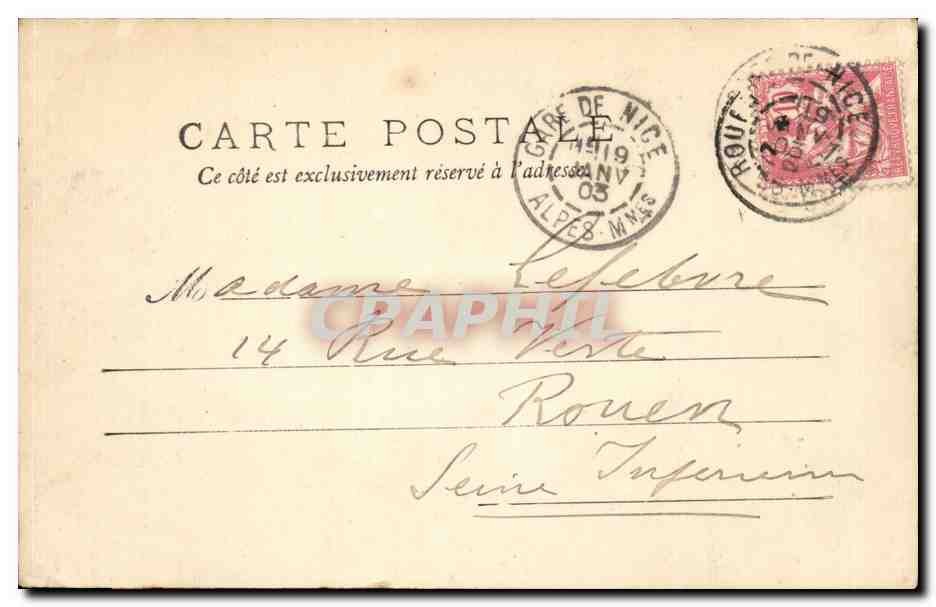 CARTE POSTALE
Ce côté est exclusivement réservé à l'adresse
GARE DE NICE
19
JANV
03
ALPES-MMES
NICE
10
Madame Lefebvre
CPAPHIL
14 Rue Verte
Rouen
Seine Inférieure